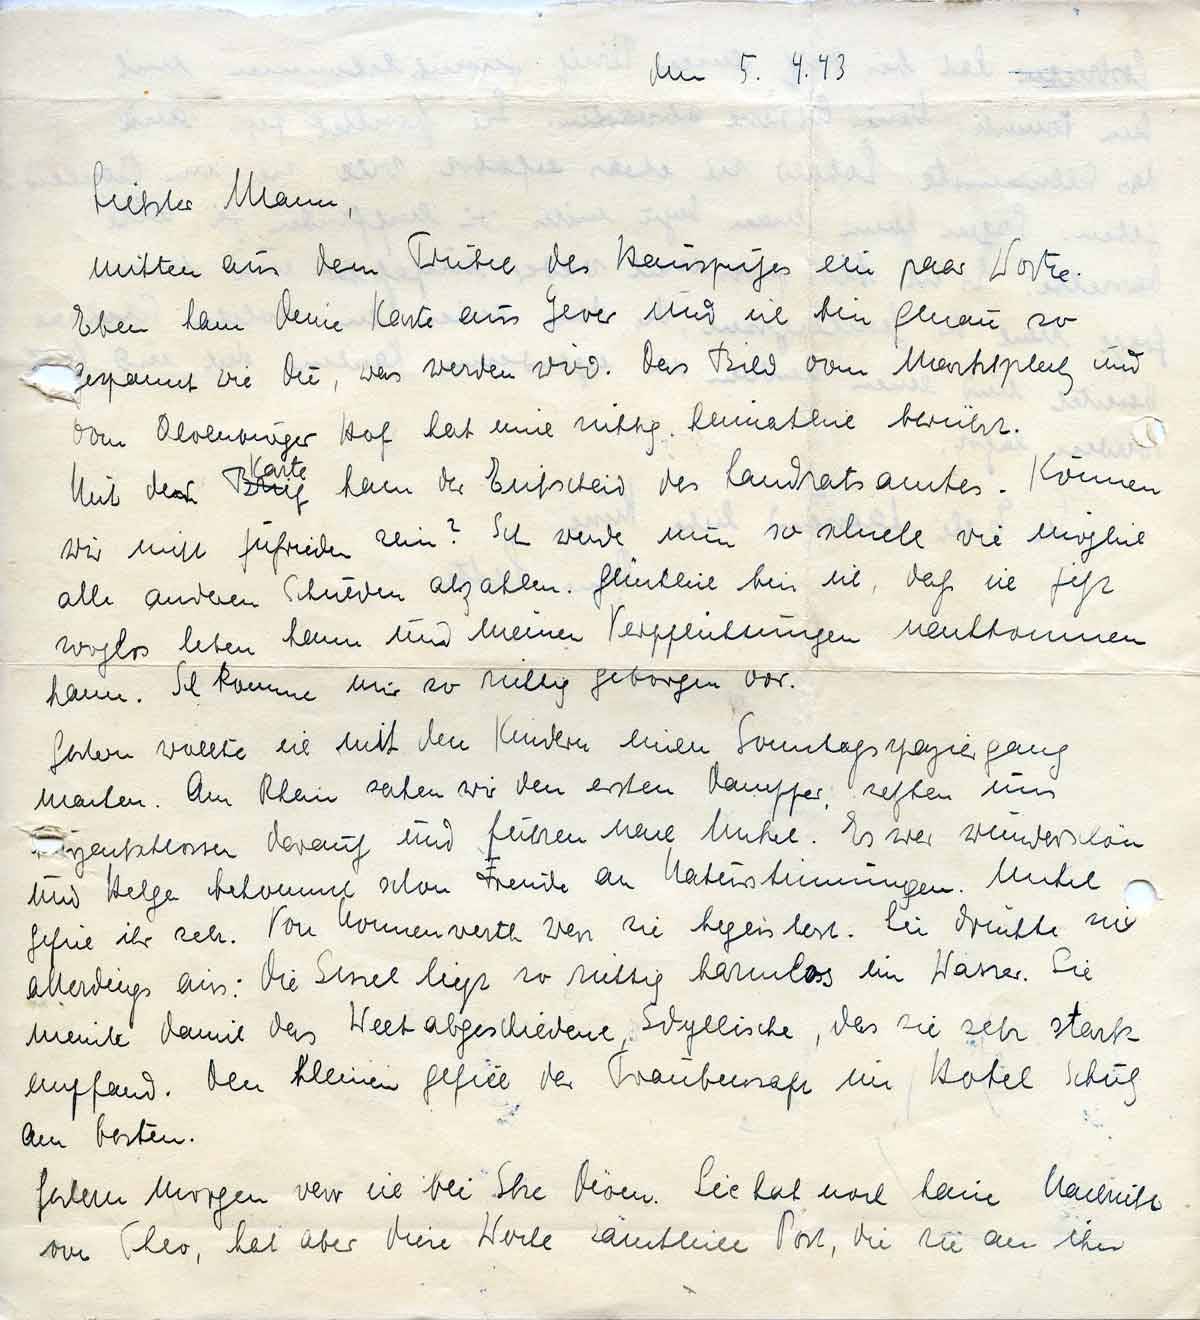 den 5. 4. 43
Liebster Mann,
mitten aus dem Trubel des Hausputzes ein paar Worte.
Eben kam Deine Karte aus Jever und ich bin genau so
gespannt wie Du, was werden wird. Das Bild vom Marktplatz und
vom Oldenburger Hof hat mich richtig heimatlich berührt.
Mit der Karte kam der Entscheid des Landratsamtes. Können
wir nicht zufrieden sein? Ich werde nun so schnell wie möglich
alle anderen Schulden abzahlen. Glücklich bin ich, dass ich jetzt
sorglos leben kann und meinen Verpflichtungen nachkommen
kann. Ich komme mir so richtig geborgen vor.
Gestern wollte ich mit den Kindern einen Sonntagsspaziergang
machen. Am Rhein sahen wir den ersten Dampfer, setzten uns
kurzentschlossen darauf und fuhren nach Unkel. Es war wunderschön
und Helge bekommt schon Freude an Naturstimmungen. Unkel
gefiel ihr sehr. Von Nonnenwerth war sie begeistert. Sie drückte sich
allerdings aus: Die Insel liegt so richtig harmlos im Wasser. Sie
meinte damit das Weltabgeschiedene, Idyllische, das sie sehr stark
empfand. Den Kleinen gefiel der Traubensaft im Hotel Schulz
am besten.
Gestern Morgen war ich bei Ilse. Sie hat noch keine Nachricht
von Theo, hat aber diese Woche sämtliche Post, die sie an ihn